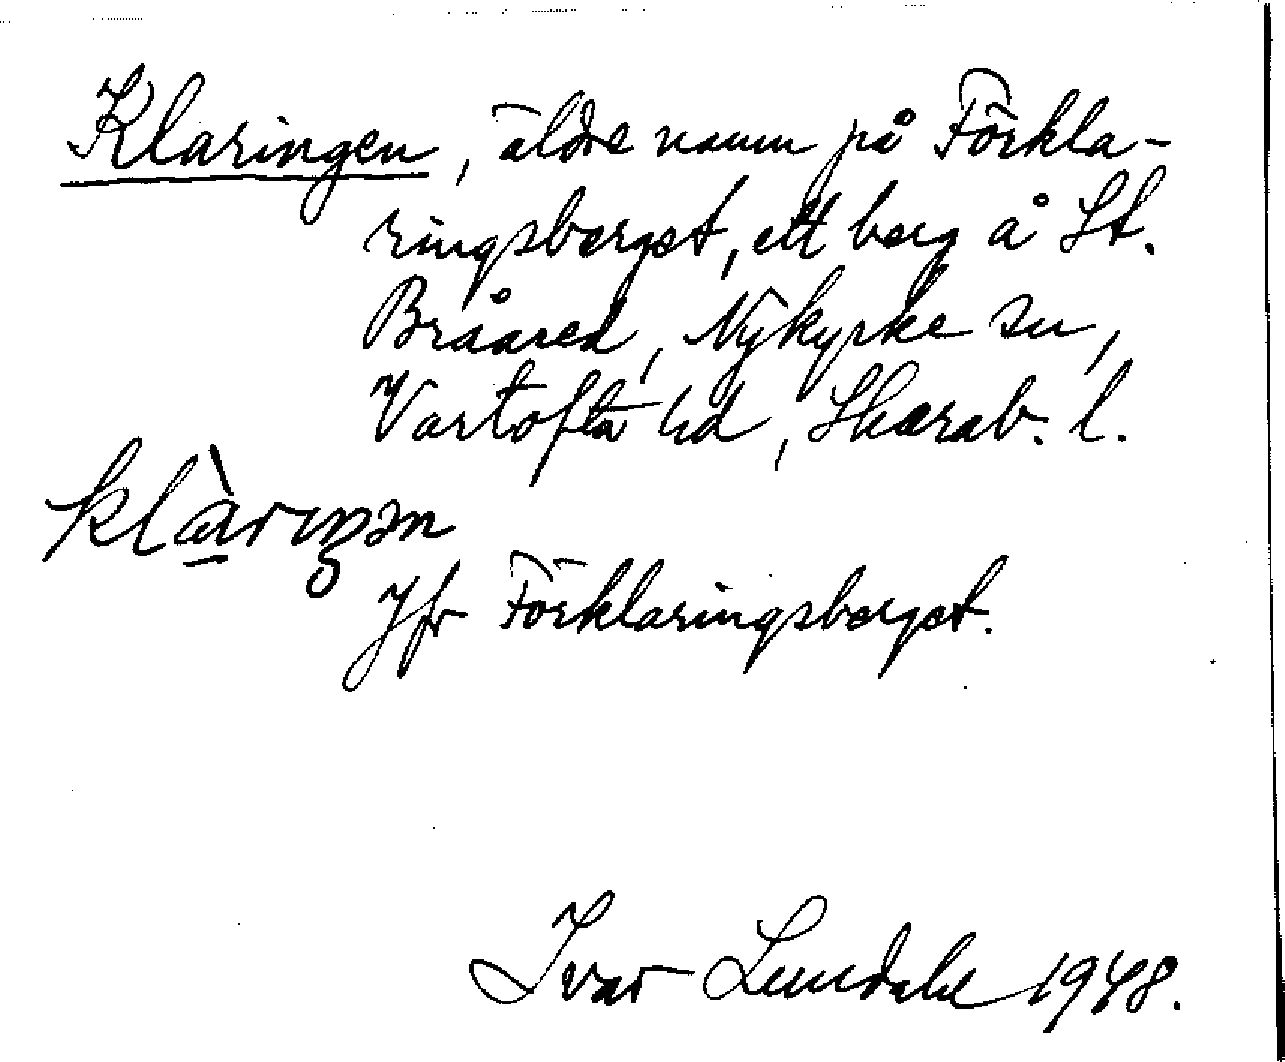 Klaringen, äldre namn på Förkla-
ringsberget, ett berg å St.
Bråared, Nykyrke sn,
Vartofta hd, Skarab. l.
klàrıŋən
Jfr Förklaringsberget.
Ivar Lundahl 1948.